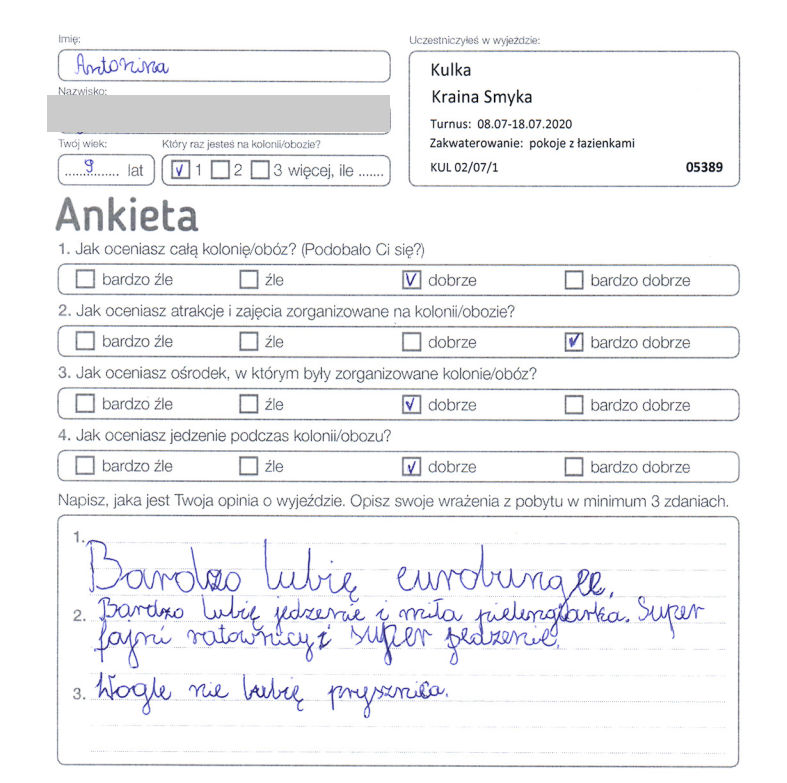 Imię:
Antonina
Uczestniczyłeś w wyjeździe:
Kulka
Kraina Smyka
Turnus: 08.07-18.07.2020
Zakwaterowanie: pokoje z łazienkami
KUL 02/07/1 05389
Nazwisko:
Twój wiek:
9 lat
Który raz jesteś na kolonii/obozie?
1 2 3 więcej, ile .......
Ankieta
1. Jak oceniasz całą kolonię/obóz? (Podobało Ci się?)
bardzo źle źle dobrze bardzo dobrze
2. Jak oceniasz atrakcje i zajęcia zorganizowane na kolonii/obozie?
bardzo źle źle dobrze bardzo dobrze
3. Jak oceniasz ośrodek, w którym były zorganizowane kolonie/obóz?
bardzo źle źle dobrze bardzo dobrze
4. Jak oceniasz jedzenie podczas kolonii/obozu?
bardzo źle źle dobrze bardzo dobrze
Napisz, jaka jest Twoja opinia o wyjeździe. Opisz swoje wrażenia z pobytu w minimum 3 zdaniach.
1. Bardzo lubię eurobungee.
2. Bardzo lubię jedzenie i miła pielengiarka. Super
fajni ratownicy i super jedzenie.
3. Wogle nie lubię prysznica.